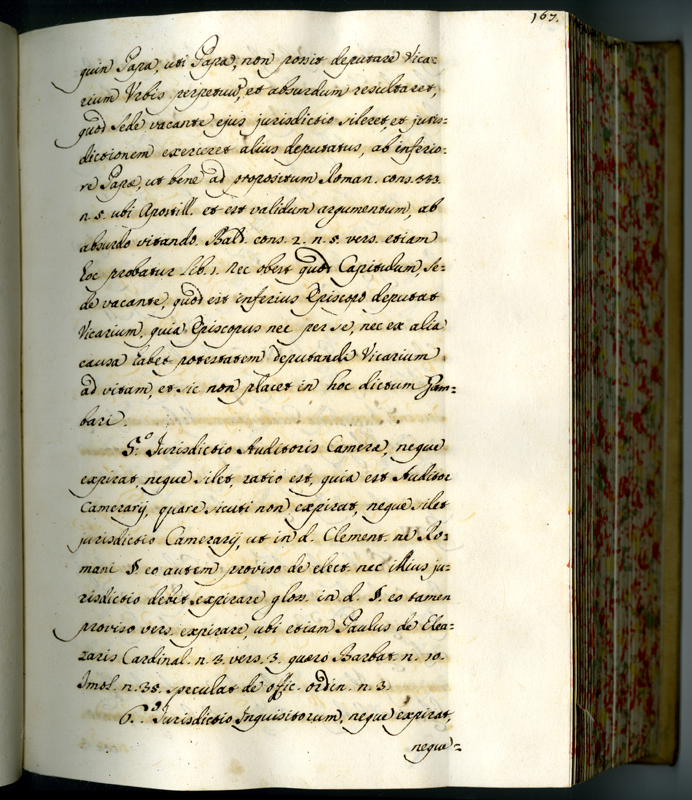 167.
quin Papa, uti Papa, non possit deputare Vica=
rium Urbis perpetuũ, et absurdum resultaret,
quod Sede vacante ejus jurisdictio sileret, et juris=
dictionem exerceret alius deputatus, ab inferio=
re Papæ, ut bene ad propositum Roman. cons. 333.
n. 5. ubi Apostill. et est validum argumentum, ab
absurdo vitando. Bald. cons. 2. n. 5. vers. etiam
hoc probatur lib. 1. Nec obest quod Capitulum, Se=
de vacante, quod est inferius Episcopo deputat
Vicarium, quia Episcopus nec per se, nec ex alia
causa habet potestatem deputandi Vicarium
ad vitam, et sic non placet in hoc dictum Gam=
bari.
5.º Jurisdictio Auditoris Cameræ, neque
expirat, neque silet, ratio est, quia est Auditor
Camerarij, quare sicuti non expirat, neque silet
jurisdictio Camerarij, ut in d. Clement. ne Ro=
mani §. eo autem proviso de elect. nec illius ju=
risdictio debet expirare gloss. in d. §. eo tamen
proviso vers. expirare, ubi etiam Paulus de Elea=
zaris Cardinal. n. 3. vers. 3. quæro Barbat. n. 10.
Imol. n. 38. Speculat. de offic. ordin. n. 3.
6.º Jurisdictio Inquisitorum, neque expirat,
neque=